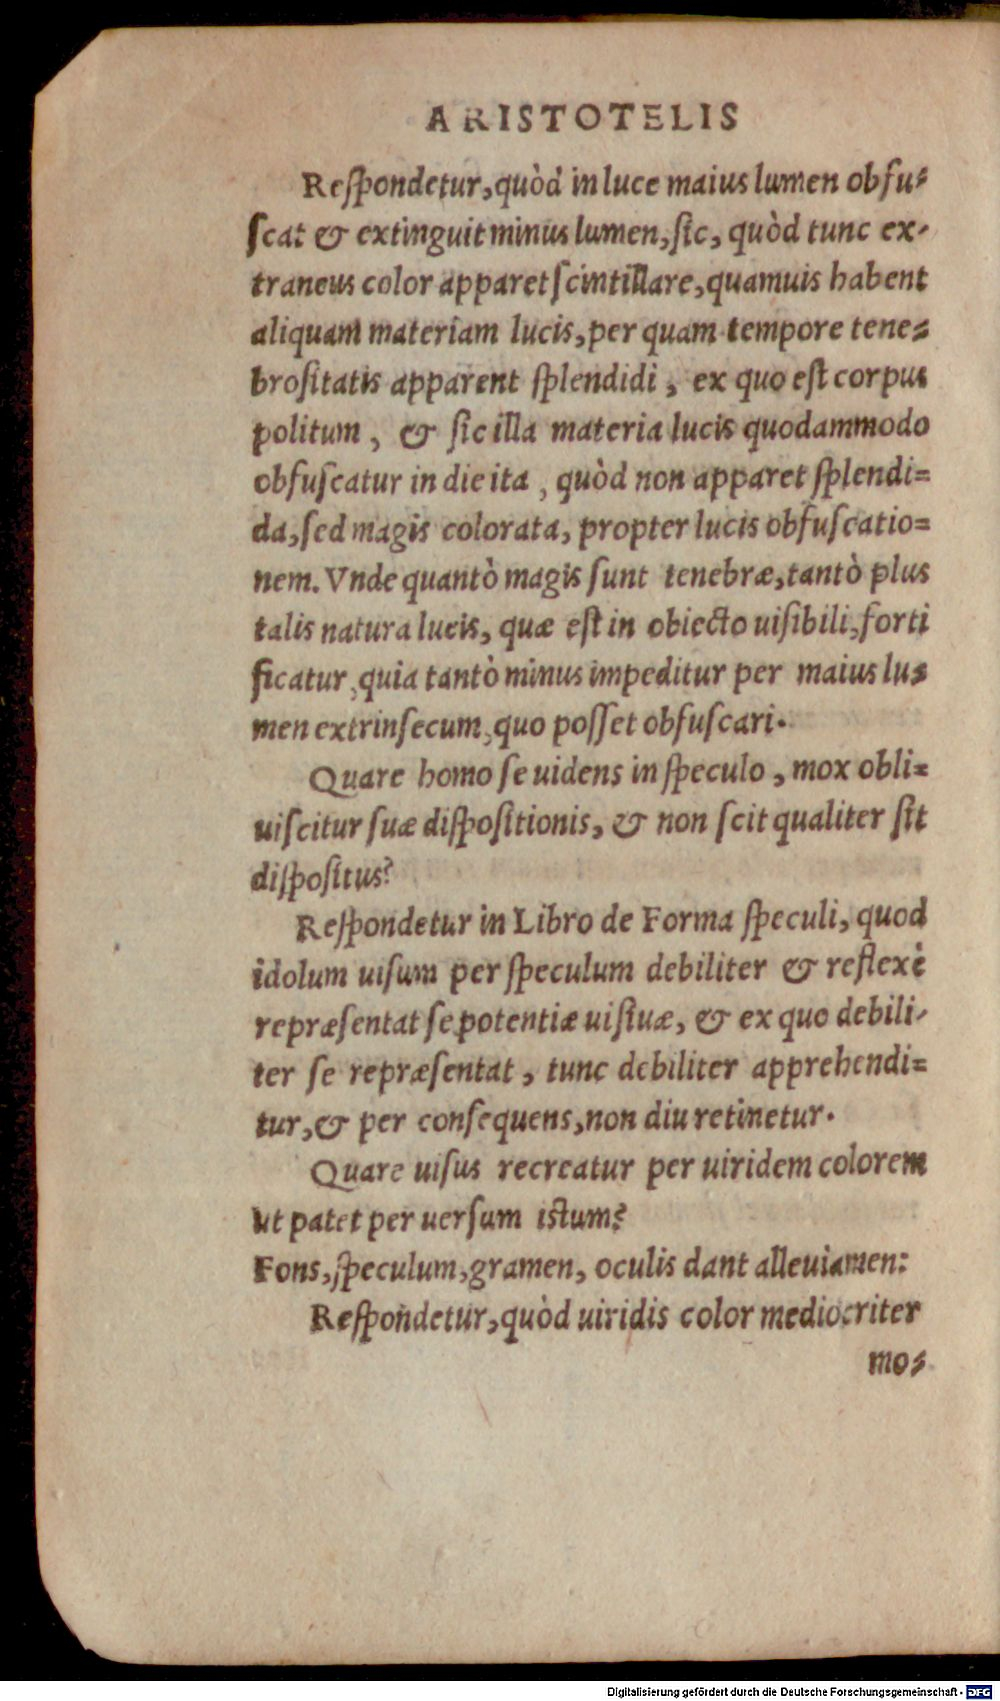 ARISTOTELIS
Reſpondetur, quòd in luce maius lumen obfu-
ſcat & extinguit minus lumen, ſic, quòd tunc ex-
traneus color apparet ſcintillare, quamuis habent
aliquam materiam lucis, per quam tempore tene-
broſitatis apparent ſplendidi, ex quo eſt corpus
politum, & ſic illa materia lucis quodammodo
obfuſcatur in die ita, quòd non apparet ſplendi-
da, ſed magis colorata, propter lucis obfuſcatio-
nem. Vnde quantò magis ſunt tenebræ, tantò plus
talis natura lucis, quæ eſt in obiecto uiſibili, forti
ficatur, quia tantò minus impeditur per maius lu-
men extrinſecum, quo poſſet obfuſcari.
Quare homo ſe uidens in ſpeculo, mox obli-
uiſcitur ſuæ diſpoſitionis, & non ſcit qualiter ſit
diſpoſitus?
Reſpondetur in Libro de Forma ſpeculi, quod
idolum uiſum per ſpeculum debiliter & reflexè
repræſentat ſe potentiæ uiſiuæ, & ex quo debili-
ter ſe repræſentat, tunc debiliter apprehendi-
tur, & per conſequens, non diu retinetur.
Quare uiſus recreatur per uiridem colorem
ut patet per uerſum iſtum?
Fons, ſpeculum, gramen, oculis dant alleuiamen:
Reſpondetur, quòd uiridis color mediocriter
mo-
Digitalisierung gefördert durch die Deutsche Forschungsgemeinschaft - DFG